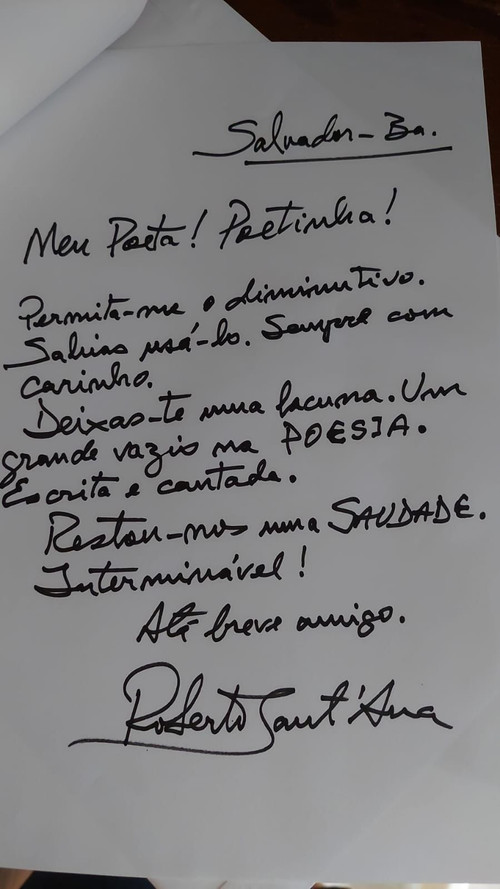 Salvador-Ba.
Meu Poeta! Poetinha!
Permita-me o diminutivo.
Sabias usá-lo. Sempre com
carinho.
Deixas-te uma lacuna. Um
grande vazio na POESIA.
Escrita e cantada.
Restou-nos uma SAUDADE.
Interminável!
Até breve amigo.
Roberto Sant'Ana